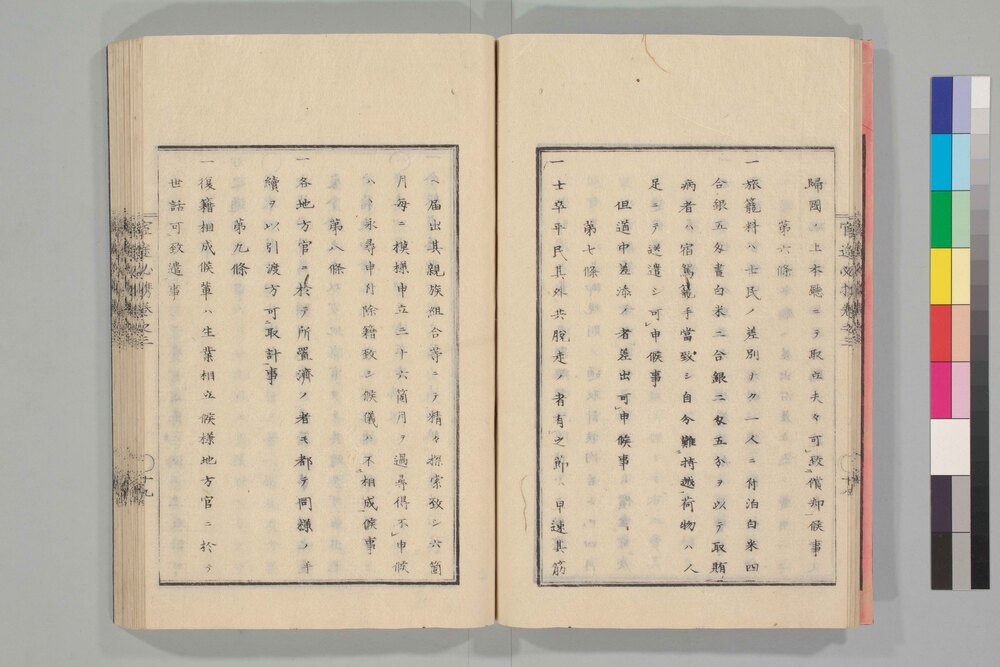 歸國ノ上本聽ニテ取立夫々可致償却候事
第六條
一 旅籠料ハ士民ノ差別ナク一人ニ付泊白米四
合銀五匁晝白米二合銀二匁五分ヲ以テ取賄
病者ハ宿駕籠手當致シ自分難持越荷物ハ人
足ニテ送遣シ可申候事
但道中差添ノ者差出可申候事
第七條
一 士卒平民其外共脫走ノ者有之節ハ早速其筋
ヘ届出其親族組合等ニテ精々探索致シ六箇
月每ニ摸樣申立三十六箇月ヲ過尋得不申候
ハヽ永尋申付除籍致シ候儀ハ不相成候事
第八條
一 各地方官ニ於テ所置濟ノ者モ都テ同樣ノ手
續ヲ以引渡方可取計事
第九條
一 復籍相成候輩ハ生業相立候樣地方官ニ於テ
世話可致遣事
十九